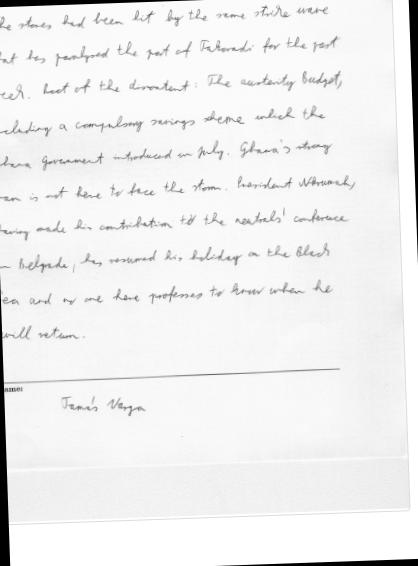 he stores had been hit by the same strike wave
hat has paralysed the port of Takoradi for the past
eek. Root of the discontent: The austerity Budget,
cluding a compulsory savings scheme which the
hana Government introduced in July. Ghana's strong
an is not here to face the storm. President Nkrumah,
aving made his contribution to the neutrals' conference
n Belgrade, has resumed his holiday on the Black
ea and no one here professes to know when he
will return.
ame:
Tamás Varga